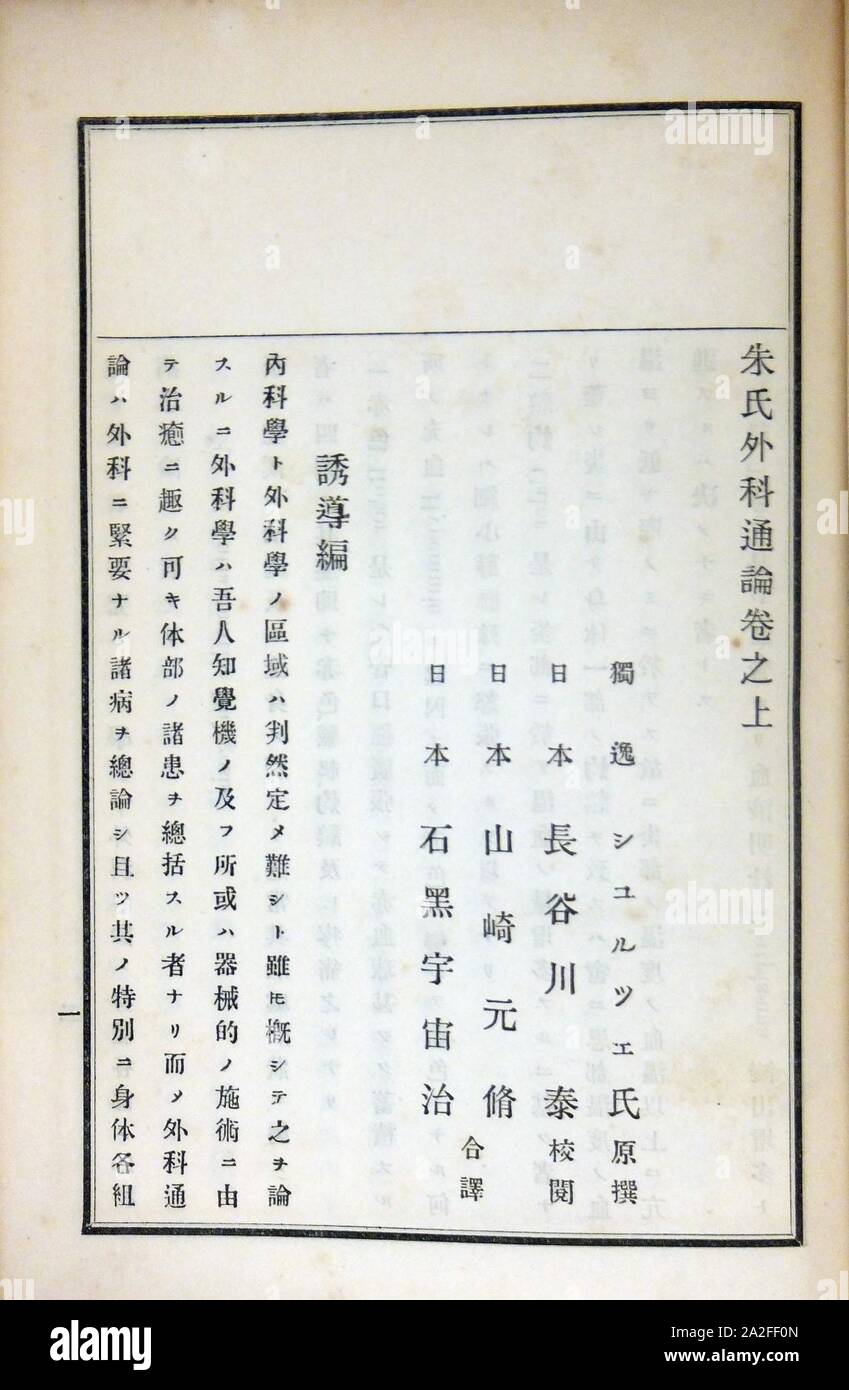 朱氏外科通論卷之上
獨逸 シユルツエ氏原撰
日本 長谷川 泰校閲
日本 山崎元脩
日本 石黑宇宙治
合譯
誘導編
內科學ト外科學ノ區域ハ判然定メ難シト雖𪜈概シテ之ヲ論
スルニ外科學ハ吾人知覺機ノ及フ所或ハ器械的ノ施術ニ由
テ治癒ニ趣ク可キ体部ノ諸患ヲ總括スル者ナリ而〆外科通
論ハ外科ニ緊要ナル諸病ヲ總論シ且ツ其ノ特別ニ身体各組
一
alamy
Image ID: 2A2FF0N
www.alamy.com